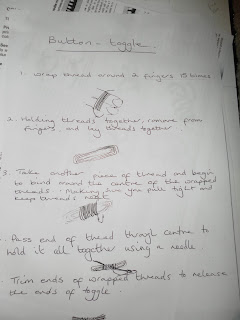 Button - toggle.
1. Wrap thread around 2 fingers 15 times.
2. Holding threads together, remove from
fingers and lay threads together
3. Take another piece of thread and begin
to bind around the centre of the wrapped
threads. Making sure you pull tight and
keep threads neat.
. Pass end of thread through centre to
hold it all together using a needle.
. Trim ends of wrapped threads to release
the ends of toggle.